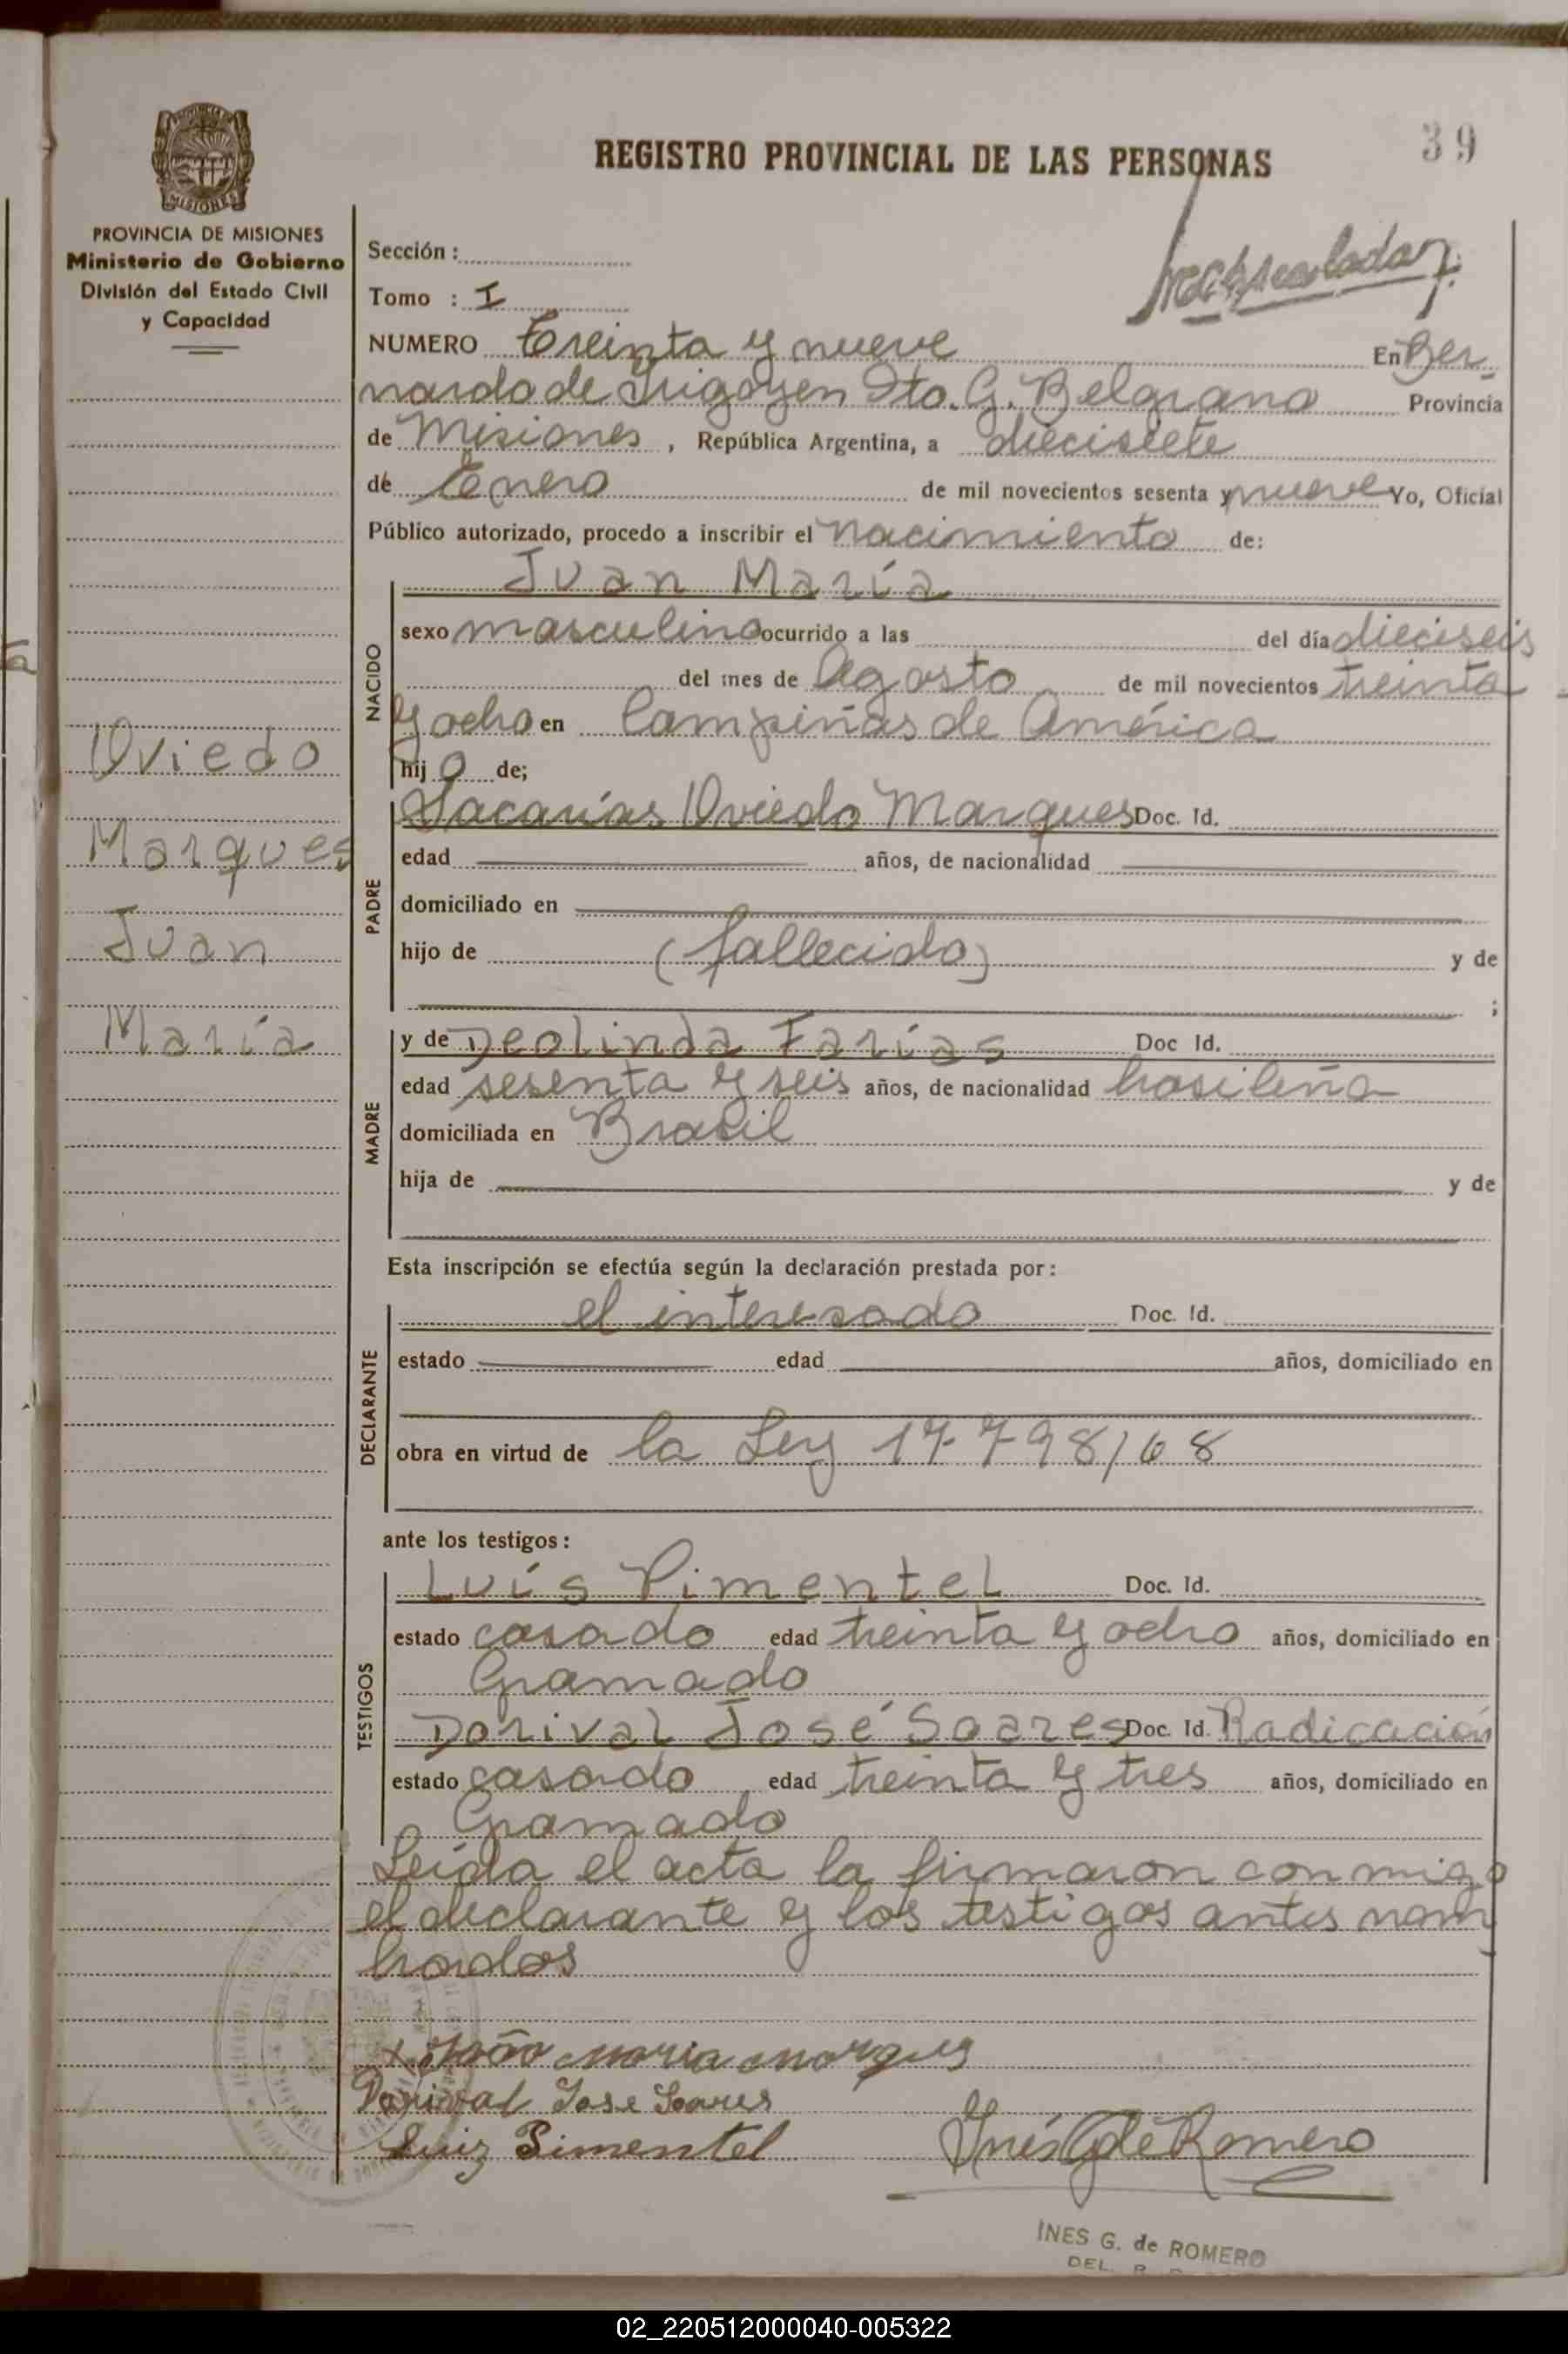 39
REGISTRO PROVINCIAL DE LAS PERSONAS
MISIONES
PROVINCIA DE MISIONES
Ministerio de Gobierno
División del Estado Civil
y Capacidad
Sección :
Tomo : I
NUMERO Treinta y nueve En Ber-
nardo de Irigoyen Dto. G. Belgrano Provincia
de Misiones, República Argentina, a diecisiete
de Enero de mil novecientos sesenta y nueve Yo, Oficial
Público autorizado, procedo a inscribir el nacimiento de:
Juan María
NACIDO
sexo masculino ocurrido a las del día dieciseis
del mes de Agosto de mil novecientos treinta
y ocho en Campiñas de América
hijo de;
Oviedo
Marques
Juan
María
PADRE
Sacarías Oviedo Marques Doc. Id.
edad años, de nacionalidad
domiciliado en
hijo de (fallecido) y de
;
MADRE
y de Deolinda Farías Doc Id.
edad sesenta y seis años, de nacionalidad brasileña
domiciliada en Brasil
hija de y de
Esta inscripción se efectúa según la declaración prestada por:
DECLARANTE
el interesado Doc. Id.
estado edad años, domiciliado en
obra en virtud de la Ley 17.798/68
ante los testigos:
TESTIGOS
Luís Pimentel Doc. Id.
estado casado edad treinta y ocho años, domiciliado en
Gramado
Dorival José Soares Doc. Id. Radicación
estado casado edad treinta y tres años, domiciliado en
Gramado
Leída el acta la firmaron conmigo
el declarante y los testigos antes nom
brados
x João maria marques
Dorival Jose Soares
Luiz Pimentel
Inés G de Romero
INES G. de ROMERO
DEL. R.
02_220512000040-005322